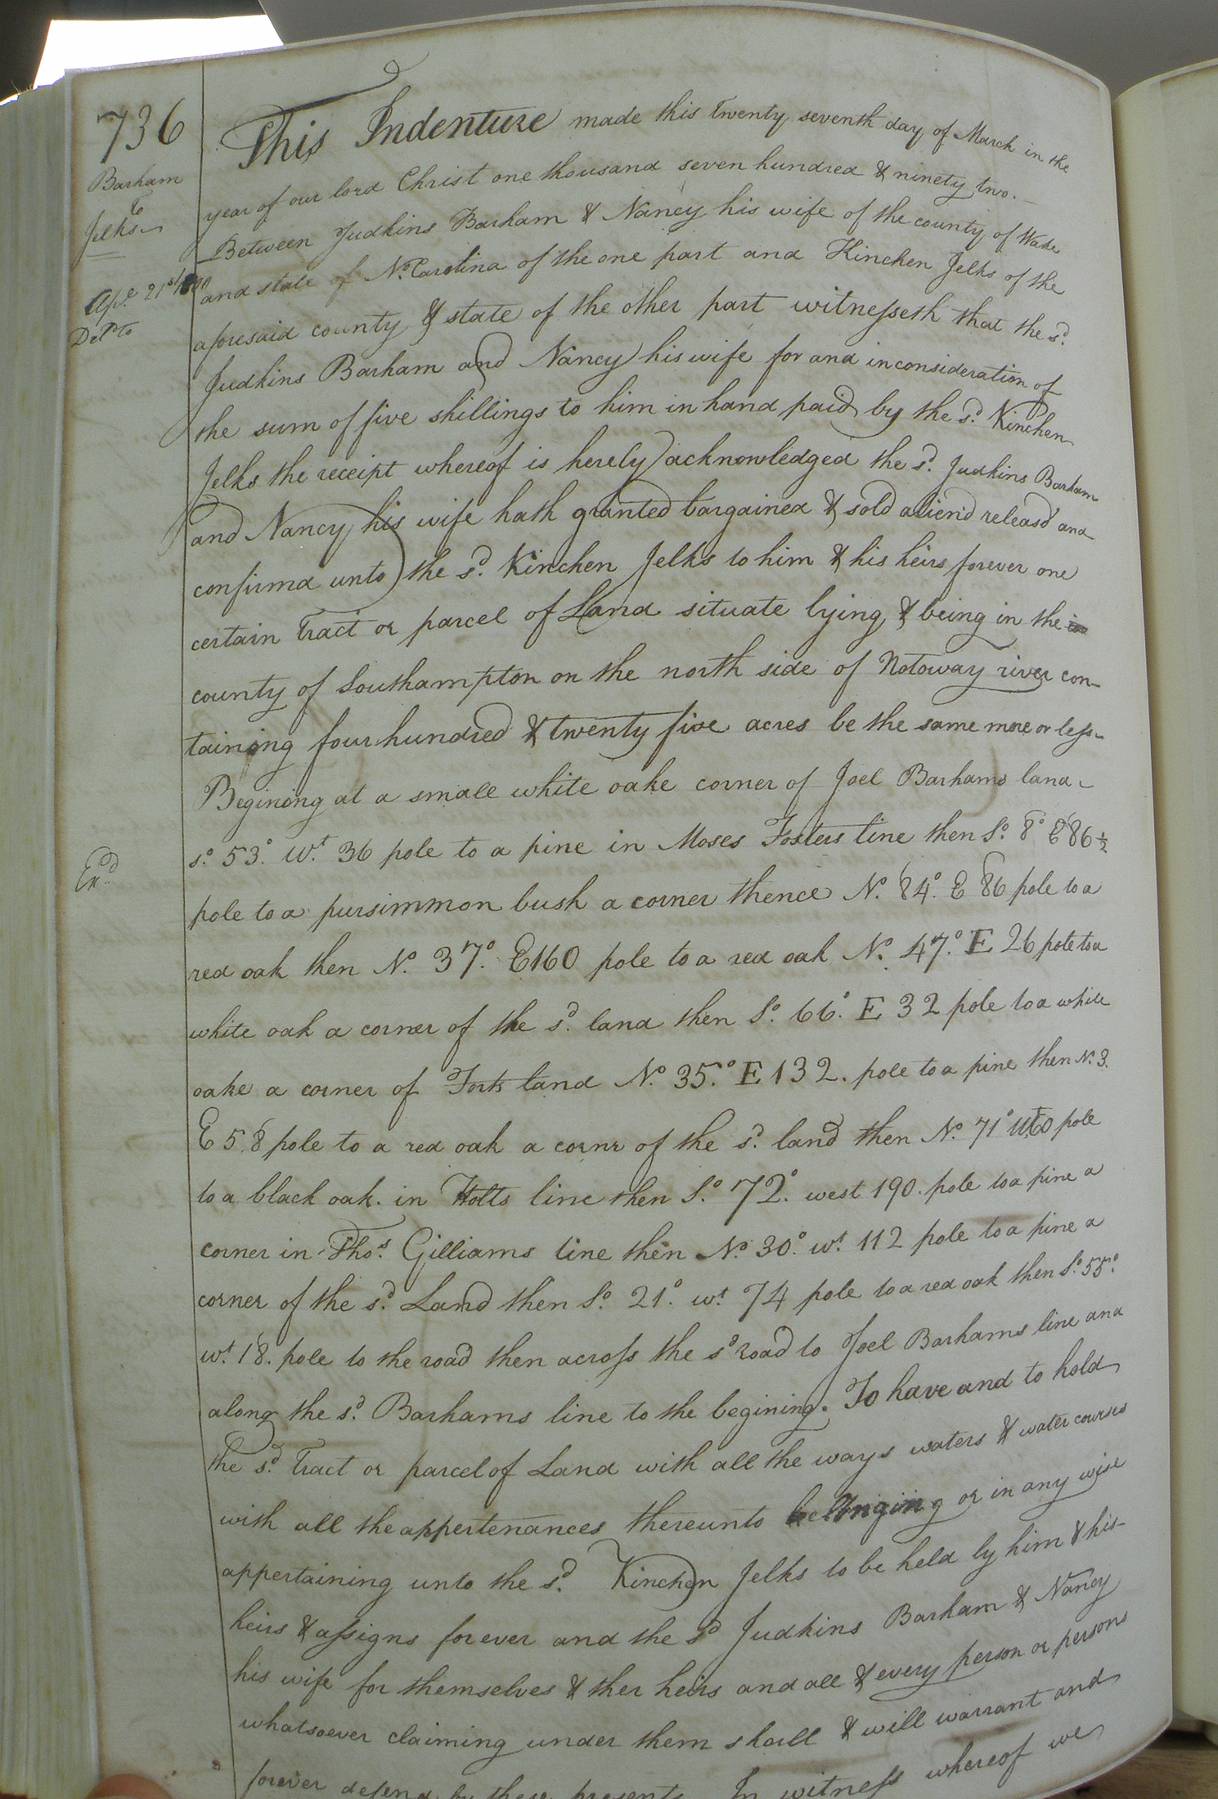 736
Barham
to
Jelks
Del.d to
Ex.d
This Indenture made this twenty seventh day of March in the
year of our lord Christ one thousand seven hundred & ninety two.
Between Judkins Barham & Nancy his wife of the county of Wake
and state of No. Carolina of the one part and Kinchen Jelks of the
aforesaid county & state of the other part witnesseth that the sd.
Judkins Barham and Nancy his wife for and in consideration of
the sum of five shillings to him in hand paid by the sd. Kinchen
Jelks the receipt whereof is herely acknowledged the sd. Judkins Barham
and Nancy his wife hath granted bargained & sold aliend releasd and
confirmd unto the sd. Kinchen Jelks to him & his heirs forever one
certain Tract or parcel of Land situate lying & being in the
county of Southampton on the north side of Notoway river con-
taining four hundred & twenty five acres be the same more or less
Begining at a small white oake corner of Joel Barhams land
so. 53° Wt. 36 pole to a pine in Moses Fosters line then So. 8° E 86½
pole to a pursimmon bush a corner thence No. 84° E 86 pole to a
red oak then No. 37° E 160 pole to a red oak No. 47° E 26 pole to a
white oak a corner of the sd. land then So. 66° E 32 pole to a white
oake a corner of Forts land No. 35° E 132. pole to a pine then No. 3.
E 58 pole to a red oak a cornr of the sd. land then No. 71° 60 pole
to a black oak. in Holts line then So. 72° west 190. pole to a pine a
corner in Thos. Gilliams line then No. 30° wt. 112 pole to a pine a
corner of the sd. Land then So. 21° wt 74 pole to a red oak then So. 55°
wt. 18. pole to the road then across the sd road to Joel Barhams line and
along the sd. Barhams line to the begining. To have and to hold
the sd. Tract or parcel of Land with all the ways waters & water courses
with all the appertenances thereunto belonging or in any wise
appertaining unto the sd. Kinchen Jelks to be held by him & his
heirs & assigns forever and the sd Judkins Barham & Nancy
his wife for themselves & ther heirs and all & every person or persons
whatsoever claiming under them shall & will warrant and
forever defend by these presents In witness whereof we